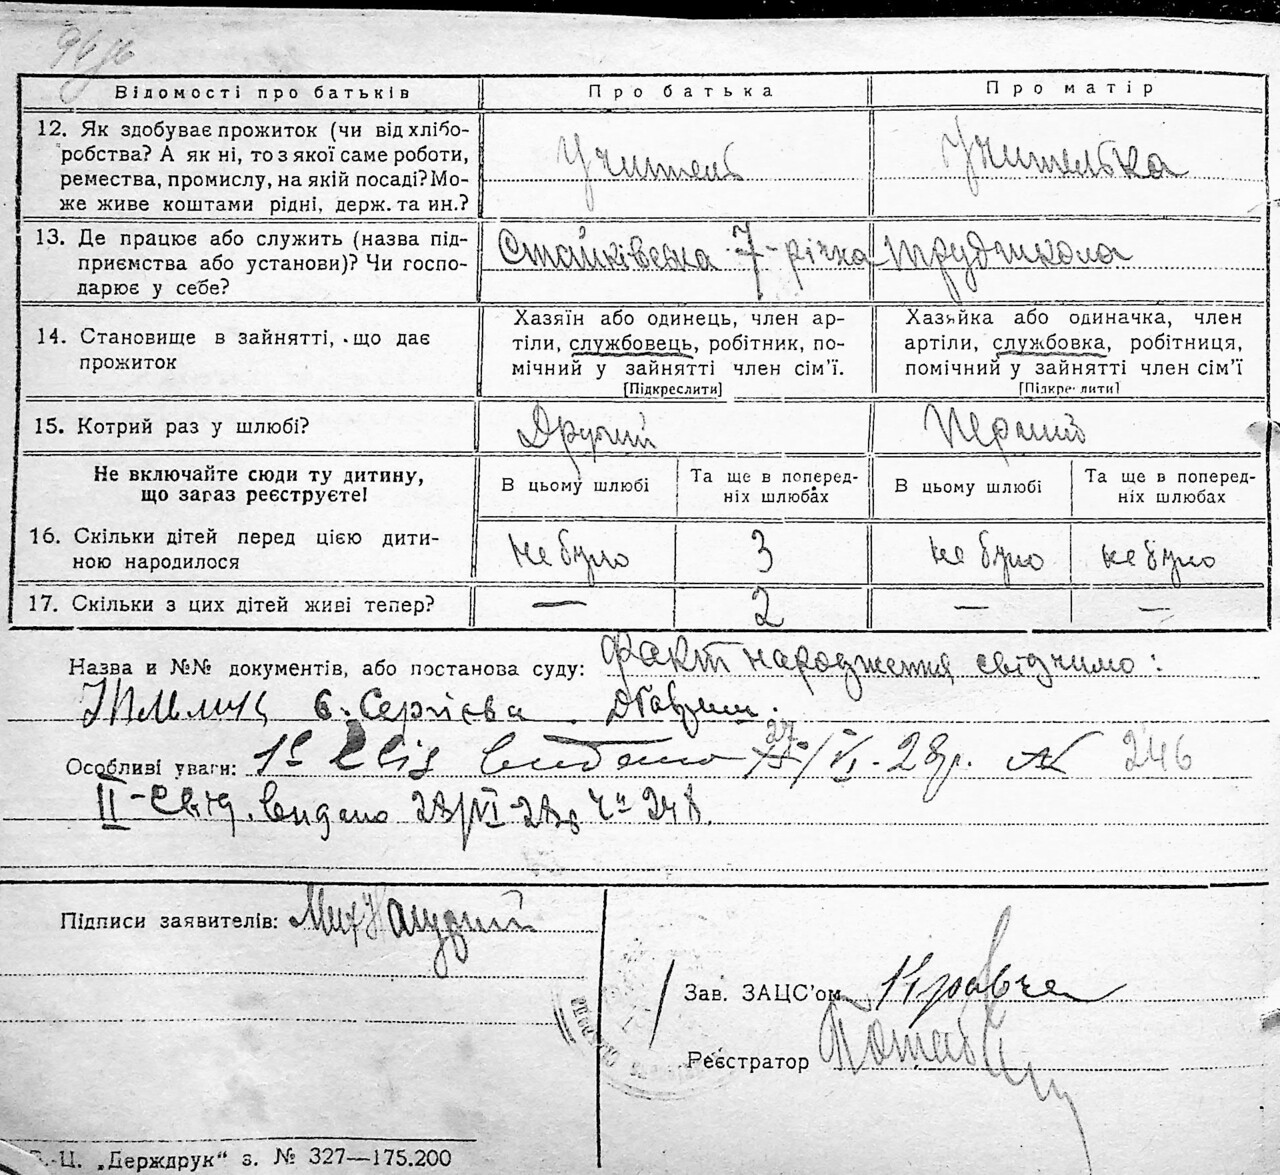 Відомості про батьків Про батька Про матір
12. Як здобуває прожиток (чи від хлібо-
робства? А як ні, то з якої саме роботи,
ремества, промислу, на якій посаді? Мо-
же живе коштами рідні, держ. та ин.?
Учитель Учителька
13. Де працює або служить (назва під-
приємства або установи)? Чи госпо-
дарює у себе?
7-річна трудшкола
14. Становище в зайнятті, що дає
прожиток
Хазяїн або одинець, член ар-
тіли, службовець, робітник, по-
мічний у зайнятті член сім'ї.
[Підкреслити]
Хазяйка або одиначка, член
артіли, службовка, робітниця,
помічний у зайнятті член сім'ї
[Підкреслити]
15. Котрий раз у шлюбі? Другий Перший
Не включайте сюди ту дитину,
що зараз реєструєте!
В цьому шлюбі
Та ще в поперед-
ніх шлюбах
В цьому шлюбі
Та ще в поперед-
ніх шлюбах
16. Скільки дітей перед цією дити-
ною народилося
не було 3 не було не було
17. Скільки з цих дітей живі тепер? — 2 — —
Назва и №№ документів, або постанова суду: Факт народження свідчимо:
Особливі уваги: видано 27/VI-28р. № 246
II-Свід. видано 28/VI-28р Ч" 248.
Підписи заявителів:
Зав. ЗАЦС'ом
Реєстратор
-Ц. „Держдрук“ з. № 327—175.200